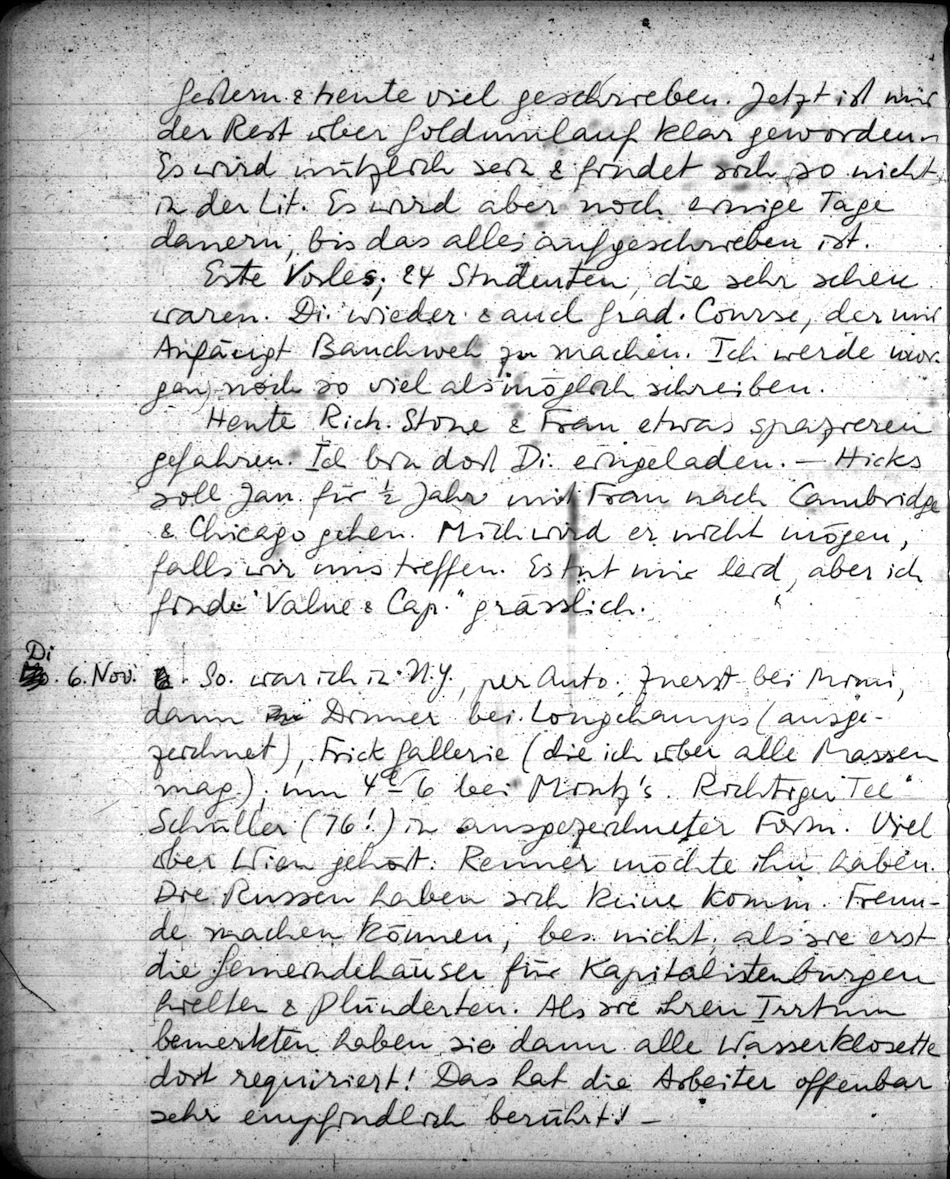 Gestern & heute viel geschrieben. Jetzt ist mir
der Rest über Goldumlauf klar geworden.
Es wird nützlich sein & findet sich so nicht
in der Lit. Es wird aber noch einige Tage
dauern, bis das alles aufgeschrieben ist.
Erste Vorles; 24 Studenten, die sehr scheu
waren. Di. wieder & auch Grad. Course, der mir
Anfängt Bauchweh zu machen. Ich werde mor-
gen noch so viel als möglich schreiben.
Heute Rich. Stone & Frau etwas spazieren
gefahren. Ich bin dort Di. eingeladen. — Hicks
soll Jan. für ½ Jahr mit Frau nach Cambridge
& Chicago gehen. Mich wird er nicht mögen,
falls wir uns treffen. Es tut mir leid, aber ich
finde "Value & Cap." grässlich.
Di
6. Nov. So. war ich in N.Y., per Auto. Zuerst bei Mimi,
dann Dinner bei Longchamps (ausge-
zeichnet), Frick Gallerie (die ich über alle Massen
mag), um 4–6 bei Mintz's. Richtiger Tee
Schüller (76!) in ausgezeichneter Form. Viel
über Wien gehört. Renner möchte ihn haben.
Die Russen haben sich keine Komm. Freun-
de machen können, bes. nicht, als sie erst
die Gemeindehäuser für Kapitalistenburgen
hielten & plünderten. Als sie ihren Irrtum
bemerkten haben sie dann alle Wasserklosette
dort requiriert! Das hat die Arbeiter offenbar
sehr empfindlich berührt! —